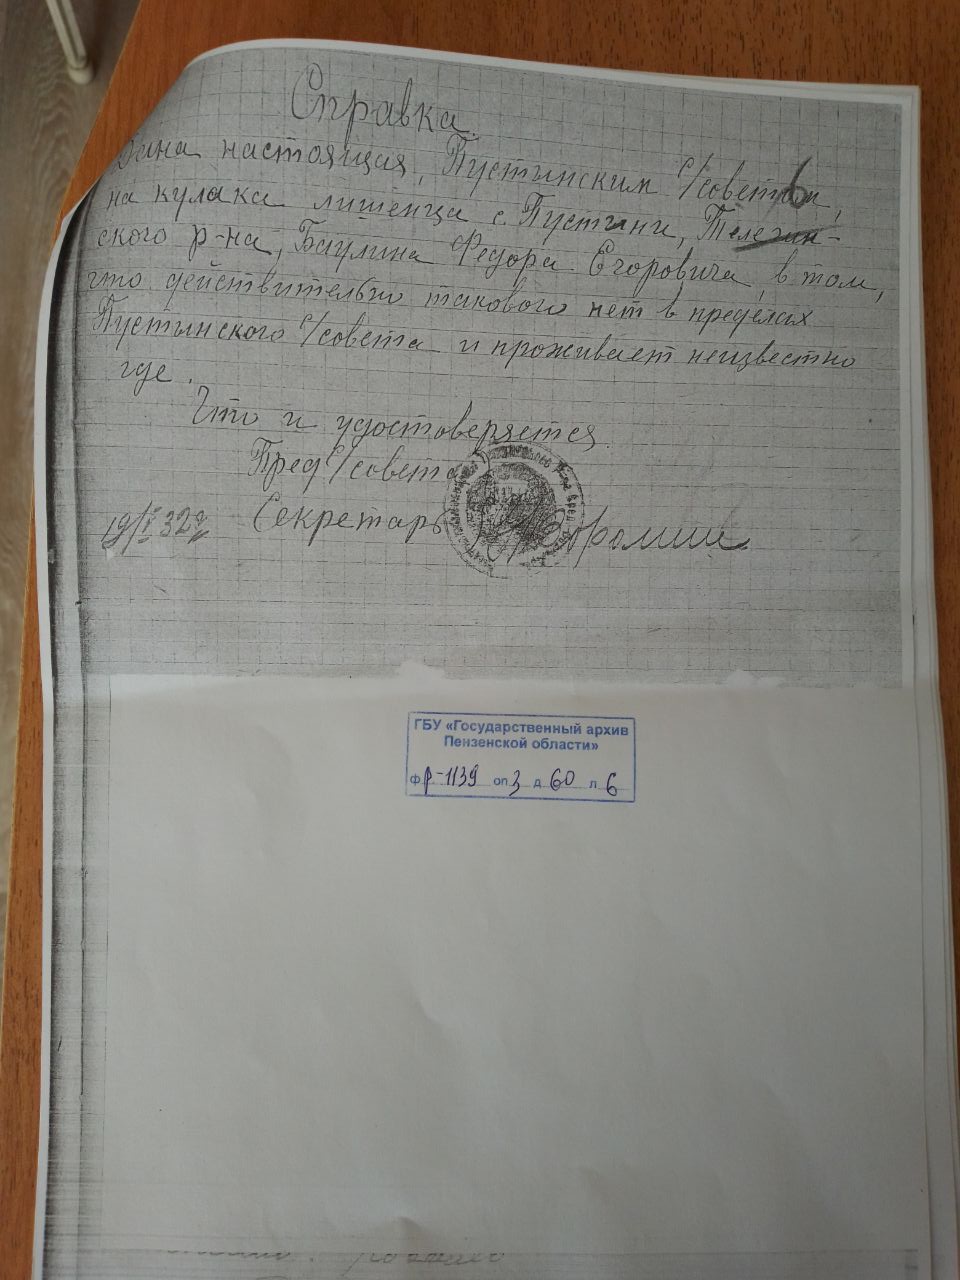 Справка.
6
Дана настоящая, Пустынским С/советом,
на кулака лишенца с. Пустыни, Телегин-
ского р-на, Баулина Федора Егоровича, в том,
что действительно такового нет в пределах
Пустынского С/совета и проживает неизвестно
где.
Что и удостоверяется.
Пред С/совета
Секретарь
ГБУ «Государственный архив
Пензенской области»
ф Р-1139 оп 3 д 60 л 6